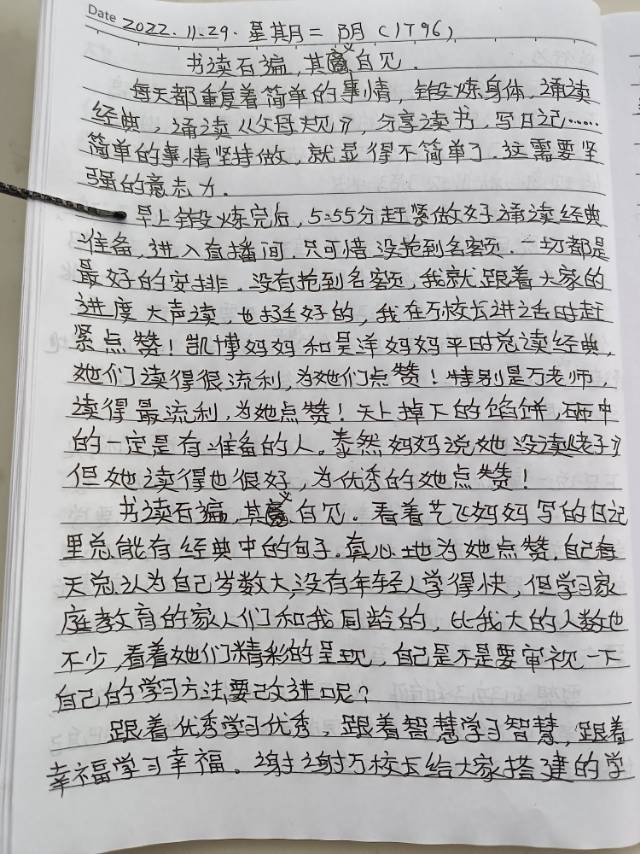 Date 2022.11.29.星期二 阴(1796)
书读百遍,其义自见.
每天都重复着简单的事情,锻炼身体.诵读
经典,诵读《父母规》,分享读书.写日记......
简单的事情坚持做,就显得不简单了.这需要坚
强的意志力.
早上锻炼完后,5:55分赶紧做好诵读经典
准备,进入直播间.只可惜没抢到名额.一切都是
最好的安排.没有抢到名额,我就跟着大家的
进度大声读,也挺好的,我在万校长讲话时赶
紧点赞!凯博妈妈和昊洋妈妈平时总读经典,
她们读得很流利,为她们点赞!特别是万老师,
读得最流利,为她点赞!天上掉下的馅饼,砸中
的一定是有准备的人。泰然妈妈说她没读《老子》
但她读得也很好,为优秀的她点赞!
书读百遍,其义自见.看着艺飞妈妈写的日记
里总能有经典中的句子.真心地为她点赞.自己每
天总认为自己岁数大,没有年轻人学得快,但学习家
庭教育的家人们和我同龄的,比我大的人数也
不少,看着她们精彩的呈现,自己是不是要审视一下
自己的学习方法,要改进呢?
跟着优秀学习优秀,跟着智慧学习智慧,跟着
幸福学习幸福。谢谢万校长给大家搭建的学